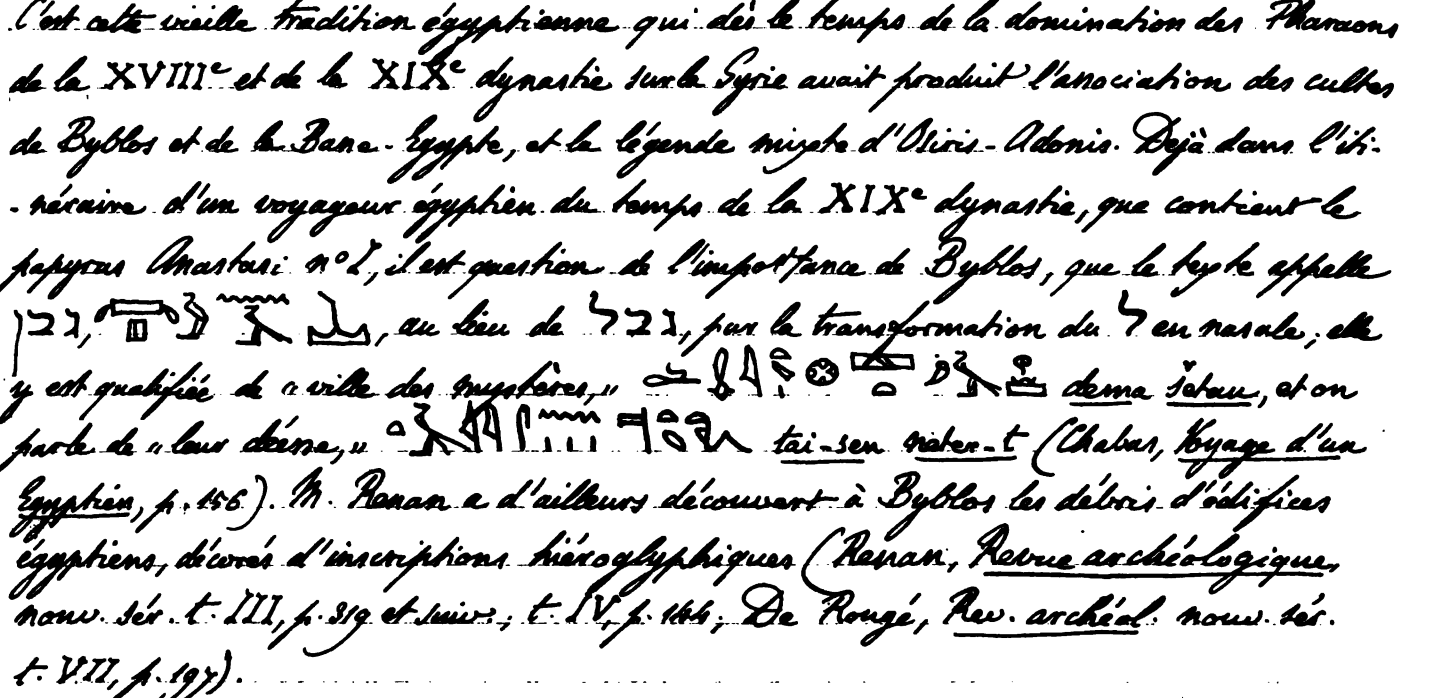 C'est cette vieille tradition égyptienne qui dès le temps de la domination des Pharaons
de la XVIIIe et de la XIXe dynastie sur la Syrie avait produit l'association des cultes
de Byblos et de la Basse-Egypte, et la légende mixte d'Osiris-Adonis. Dejà dans l'iti-
-néraire d'un voyageur égyptien du temps de la XIXe dynastie, que contient le
papyrus Anastasi no I, il est question de l'importance de Byblos, que le texte appelle
גבן, au lieu de גבל, par la transformation du ל en nasale; elle
y est qualifiée de « ville des mystères,» dema šetau, et on
parle de « leur déesse,» tai-sen nater-t (Chabas, Voyage d'un
Egyptien, p. 156). M. Renan a d'ailleurs découvert à Byblos les débris d'édifices
égyptiens, décorés d'inscriptions hiéroglyphiques (Renan, Revue archéologique,
nouv. sér. t. III, p. 319 et suiv.; t. IV, p. 144; De Rougé, Rev. archéol. nouv. sér.
t. VII, p. 197).